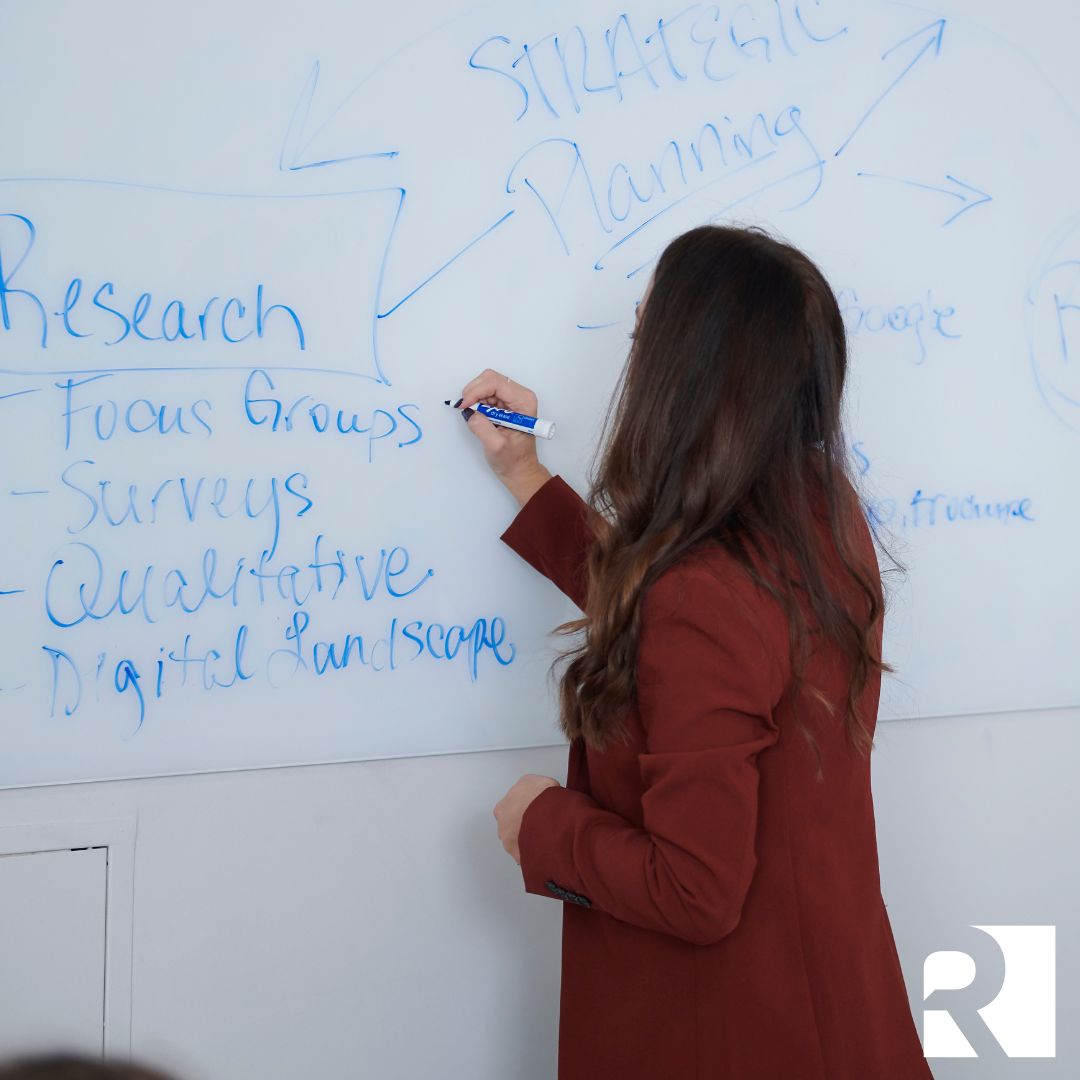 STRATEGIC
Planning
Research
- Focus Groups
- Surveys
- Qualitative
- Digital Landscape
Google
R